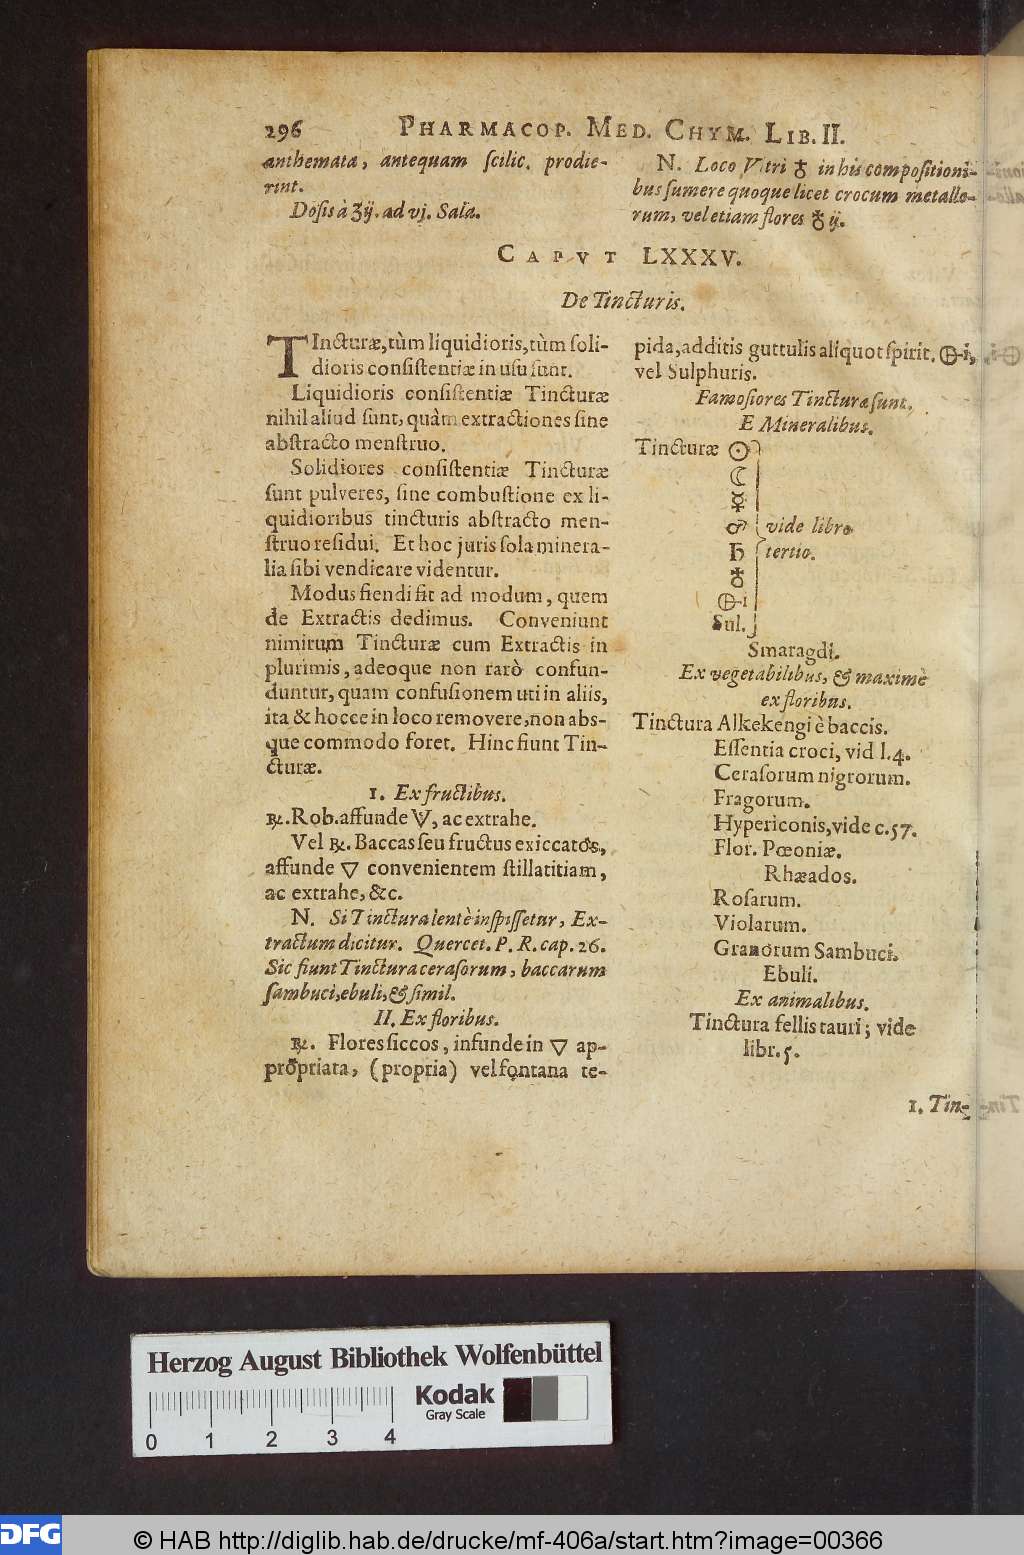 296 PHARMACOP. MED. CHYM. LIB. II.
anthemata, antequam ſcilic. prodie-
rint.
Doſis à ʒij. ad vj. Sala.
N. Loco Vitri ♁ in his compoſitioni-
bus ſumere quoque licet crocum metallo-
rum, vel etiam flores ♁ ij.
CAPVT LXXXV.
De Tincturis.
TIncturæ, tùm liquidioris, tùm ſoli-
dioris conſiſtentiæ in uſu ſunt.
Liquidioris conſiſtentiæ Tincturæ
nihil aliud ſunt, quàm extractiones ſine
abſtracto menſtruo.
Solidiores conſiſtentiæ Tincturæ
ſunt pulveres, ſine combuſtione ex li-
quidioribus tincturis abſtracto men-
ſtruo reſidui. Et hoc juris ſola minera-
lia ſibi vendicare videntur.
Modus fiendi fit ad modum, quem
de Extractis dedimus. Conveniunt
nimirum Tincturæ cum Extractis in
plurimis, adeoque non rarò confun-
duntur, quam confuſionem uti in aliis,
ita & hocce in loco removere, non abs-
que commodo foret. Hinc fiunt Tin-
cturæ.
1. Ex fructibus.
℞. Rob. affunde V, ac extrahe.
Vel ℞. Baccas ſeu fructus exiccatos,
affunde ▽ convenientem ſtillatitiam,
ac extrahe, &c.
N. Si Tinctura lentè inſpiſſetur, Ex-
tractum dicitur. Quercet. P. R. cap. 26.
Sic fiunt Tinctura ceraſorum, baccarum
ſambuci, ebuli, & ſimil.
II. Ex floribus.
℞. Flores ſiccos, infunde in ▽ ap-
propriata, (propria) vel fontana te-
pida, additis guttulis aliquot ſpirit. 🜨-i,
vel Sulphuris.
Famoſiores Tincturæ ſunt.
E Mineralibus.
Tincturæ ☉
☾
☿
♂ vide libro
♄ tertio.
♁
🜨-i
Sul.
Smaragdi.
Ex vegetabilibus, & maximè
ex floribus.
Tinctura Alkekengi è baccis.
Eſſentia croci, vid l. 4.
Ceraſorum nigrorum.
Fragorum.
Hypericonis, vide c. 57.
Flor. Pœoniæ.
Rhæados.
Roſarum.
Violarum.
Granorum Sambuci.
Ebuli.
Ex animalibus.
Tinctura fellis tauri; vide
libr. 5.
1. Tin-
Herzog August Bibliothek Wolfenbüttel
Kodak
Gray Scale
0 1 2 3 4
DFG
© HAB http://diglib.hab.de/drucke/mf-406a/start.htm?image=00366